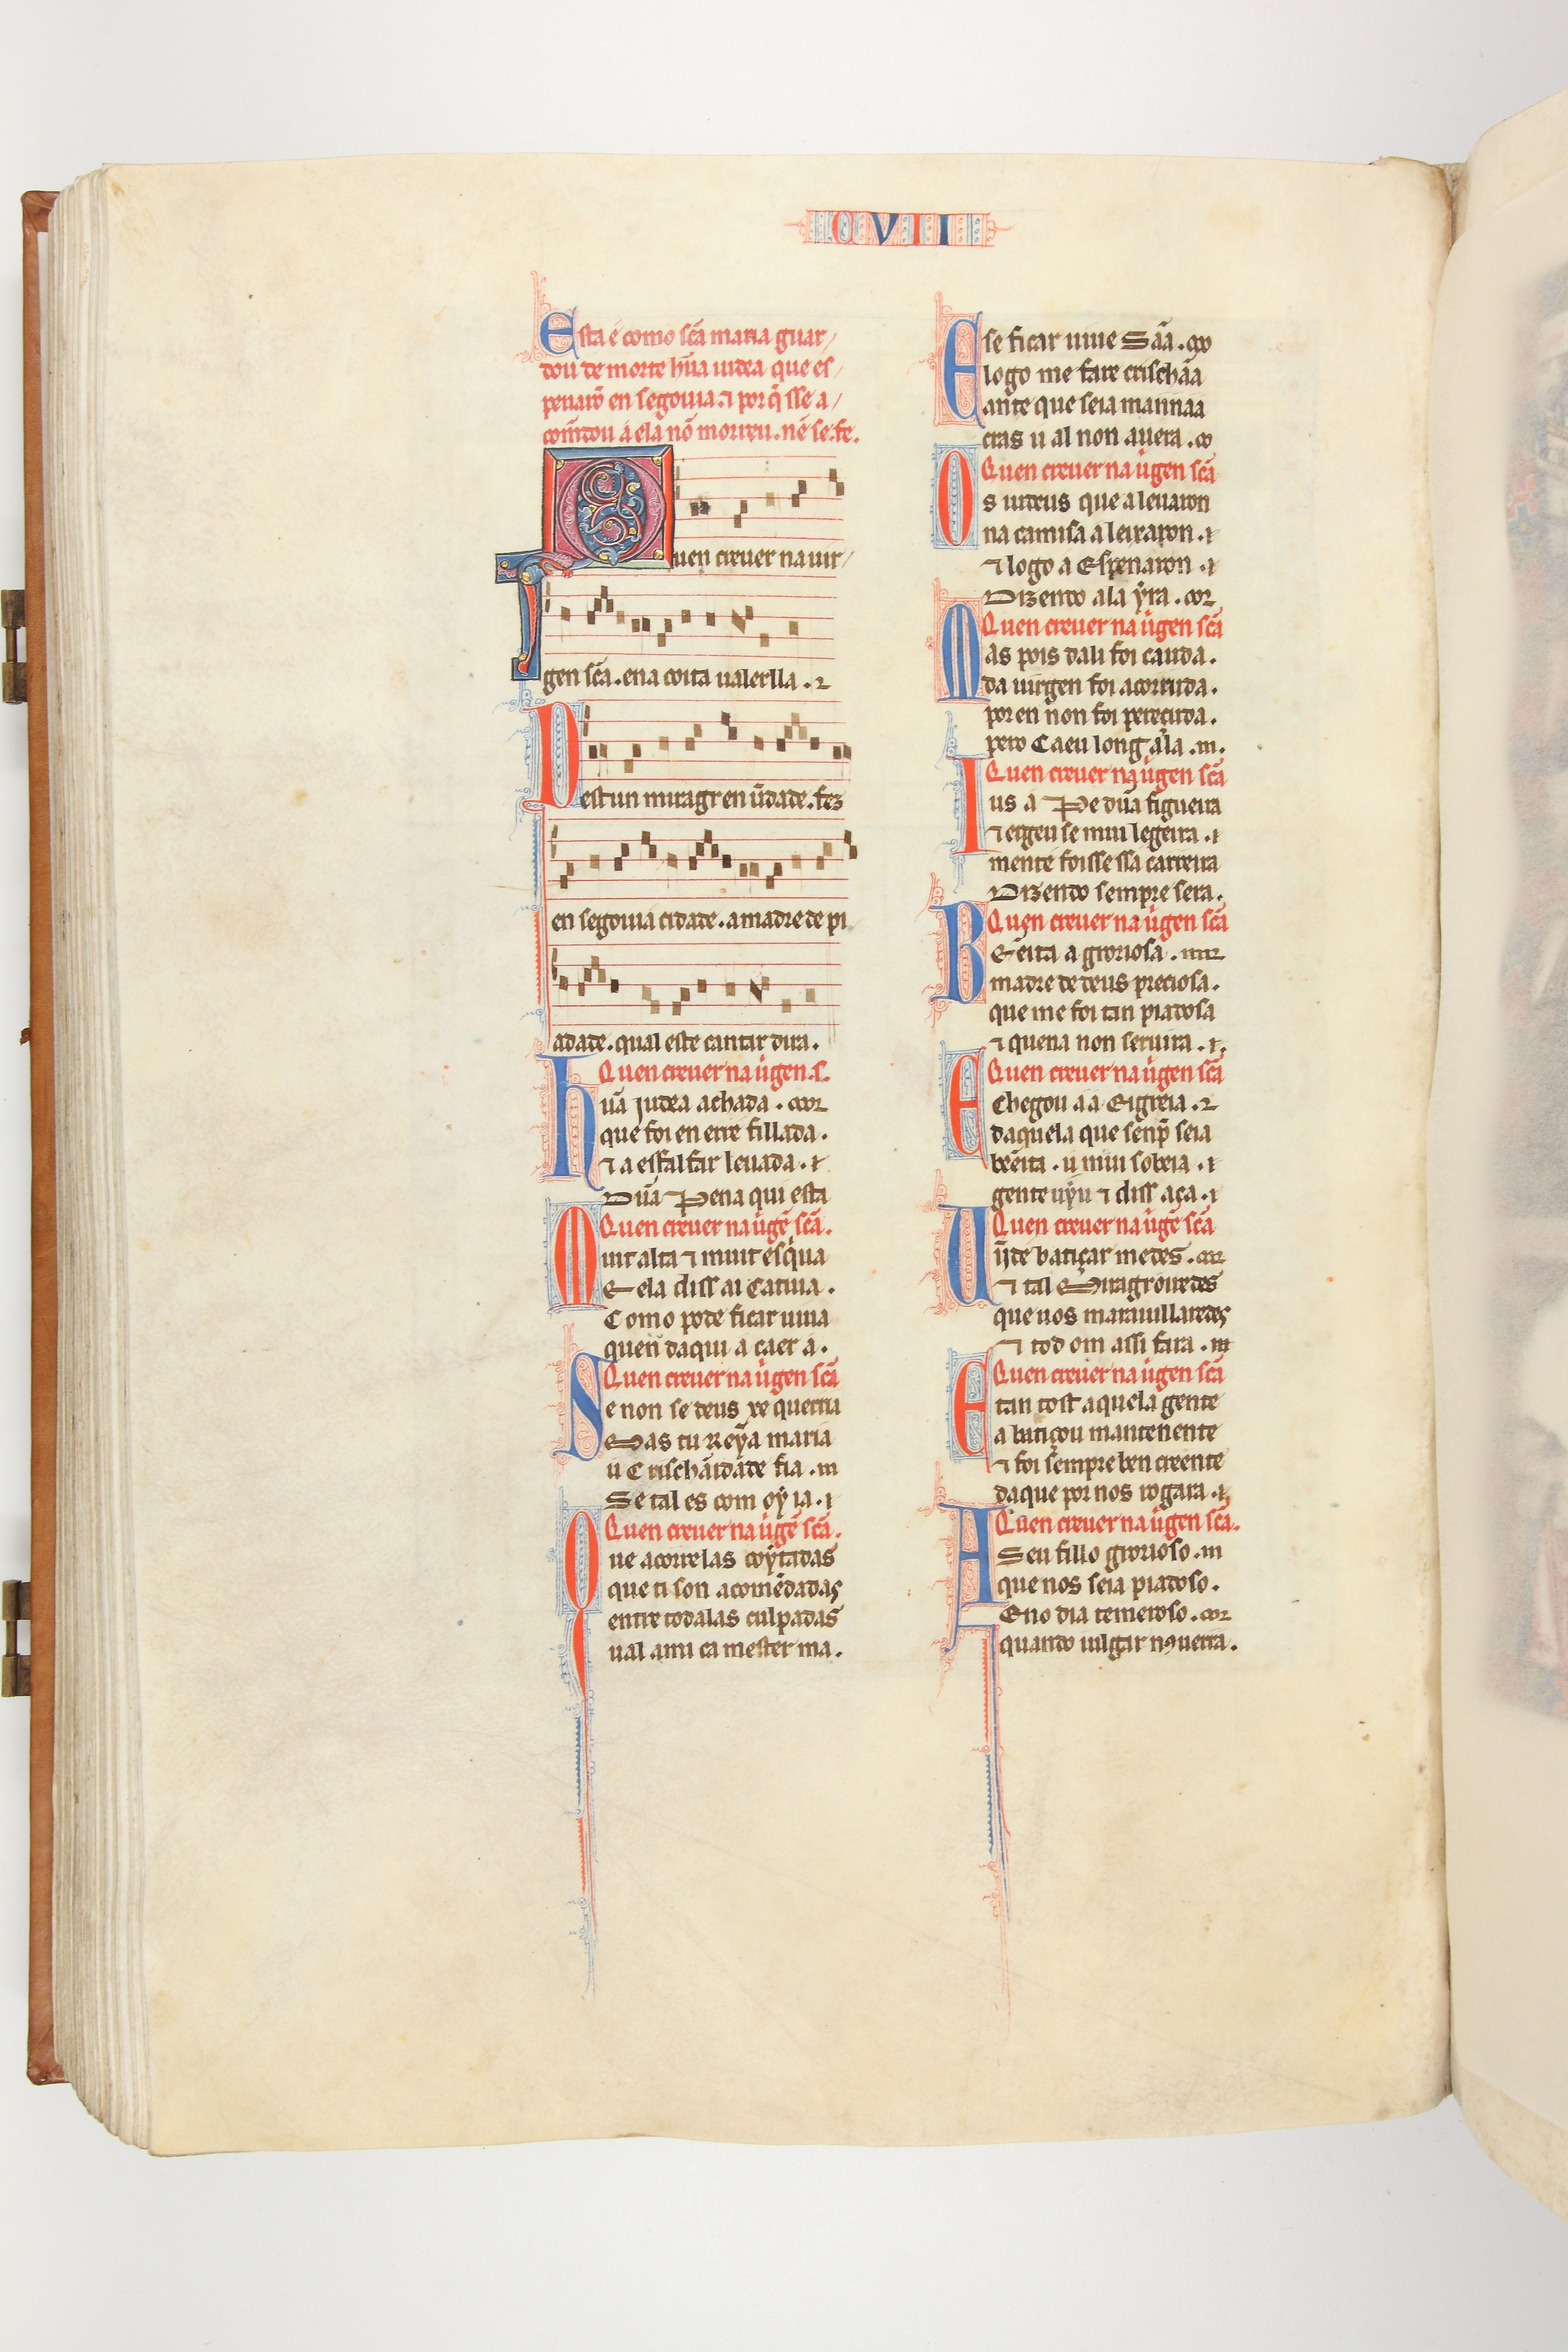 C V I I
Esta é como sc̃a maria guar/
dou de morte hũa iudea que es/
penarõ en segouia. ⁊ por q̃ sse a/
comẽdou a ela nõ morreu. nẽ se fe.
Quen creuer na uir/
gen sc̃a. ena coita ualerlla.
Dest un miragr en ũdade. fez
en segouia cidade. a madre de pi
adade. qual este cantar dira.
Quen creuer na uᷤgen. s.
hũa iudea achada.
que foi en erre fillada.
⁊ a esfalfar leuada.
Dũa Pena qui esta
Quen creuer na uᷤgẽ sc̃a.
Muit alta ⁊ muit esq̃ua
E ela diss ai Catiua.
Como pode ficar uiua
quen daqui a caer a.
Quen creuer na uᷤgen sc̃a
Se non se deus xe querria
Mas tu Reỹa maria
u Crischãidade fia.
Se tal es com oý ia.
Quen creuer na uᷤgẽ sc̃a.
Que acorrelas coýtadas
que ti son acomẽdadas
entre todalas culpadas
ual a mi ca mester ma.
E se ficar uiue Sãa.
logo me fare crischãa
ante que seia mannaa
cras u al non auera.
Quen creuer na uᷤgen sc̃a
Os iudeus que a leuaron
na camisa a leixaron.
⁊ logo a Espenaron.
Dizendo ala ýra.
Quen creuer na uᷤgen sc̃a
Mas pois dali foi cauda.
da uirgen foi acorruda.
por en non foi pereçuda.
pero Caeu long ala.
Quen creuer na uᷤgen sc̃a
Ius a Pe dũa figueira
⁊ ergeu se mui legeira.
mente foisse ssa carreira
Dizendo sempre sera.
Quen creuer na uᷤgen sc̃a
Bẽeita a groriosa.
madre de deus preciosa.
que me foi tan piadosa
⁊ quena non seruira.
Quen creuer na uᷤgen sc̃a
E Chegou aa Eigreia.
daquela que senp̃ seia
bẽeita. u mui sobeia.
gente uýu ⁊ diss aça.
Quen creuer na uᷤgẽ sc̃a
Uĩjde batiçar medes.
⁊ tal Miragr oiredes
que uos marauillaredes
⁊ tod om assi fara.
Quen creuer na uᷤgen sc̃a
E tan tost aquela gente
a batiçou mantenente
⁊ foi sempre ben creente
daque por nos rogara.
Quen creuer na uᷤgen sc̃a.
A Seu fillo grorioso.
que nos seia piadoso.
Eno dia temeroso.
quando iulgar nꝯ uerra.